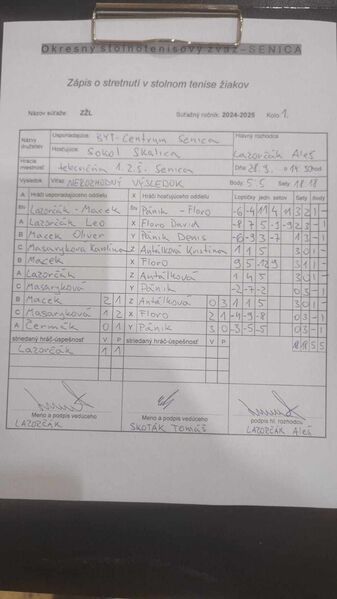 Okresný stolnotenisový zväz - SENICA
Zápis o stretnutí v stolnom tenise žiakov
Názov súťaže: ZŽL Súťažný ročník: 2024-2025 Kolo 1.
Názvy družstiev Usporiadajúce: BYT-Centrum Senica Hlavný rozhodca
Hosťujúce: SOKOL Skalica LAZORČÁK Aleš
Hracia miestnosť 1.Z.Š. Senica Dňa 28.9. o 14.30 hod
Výsledok Víťaz: NEROZHODNÝ VÝSLEDOK Body: 5:5 Sety: 18:18
A Hráči usporiadajúceho oddielu X Hráči hosťujúceho oddielu Loptičky jedn. setov Sety Body
Štv Lazorčák - Macek Štv Pánik - Floro -6 -4 11 4 11 3 2 1 -
A Lazorčák Leo X Floro David -8 7 5 -9 -9 2 3 - 1
B Macek Oliver Y Pánik Denis -6 9 -3 -7 1 3 - 1
C Masaryková Karolína Z Antálková Kristína 1 1 5 3 0 1 -
B Macek X Floro 9 5 -12 9 3 1 1 -
A Lazorčák Z Antálková 1 4 5 3 0 1 -
C Masaryková Y Pánik -2 -7 -2 0 3 - 1
B Macek 2 1 Z Antálková 0 3 1 1 5 3 0 1 -
C Masaryková 1 2 X Floro 2 1 -4 -9 -8 0 3 - 1
A Čermák 0 1 Y Pánik 3 0 -3 -5 -5 0 3 - 1
striedaný hráč-úspešnosť V P striedaný hráč-úspešnosť V P 18 18 5 5
Lazorčák 1 1
Meno a podpis vedúceho Meno a podpis vedúceho podpis hl. rozhodcu
LAZORČÁK SKOTÁK Tomáš LAZORČÁK Aleš